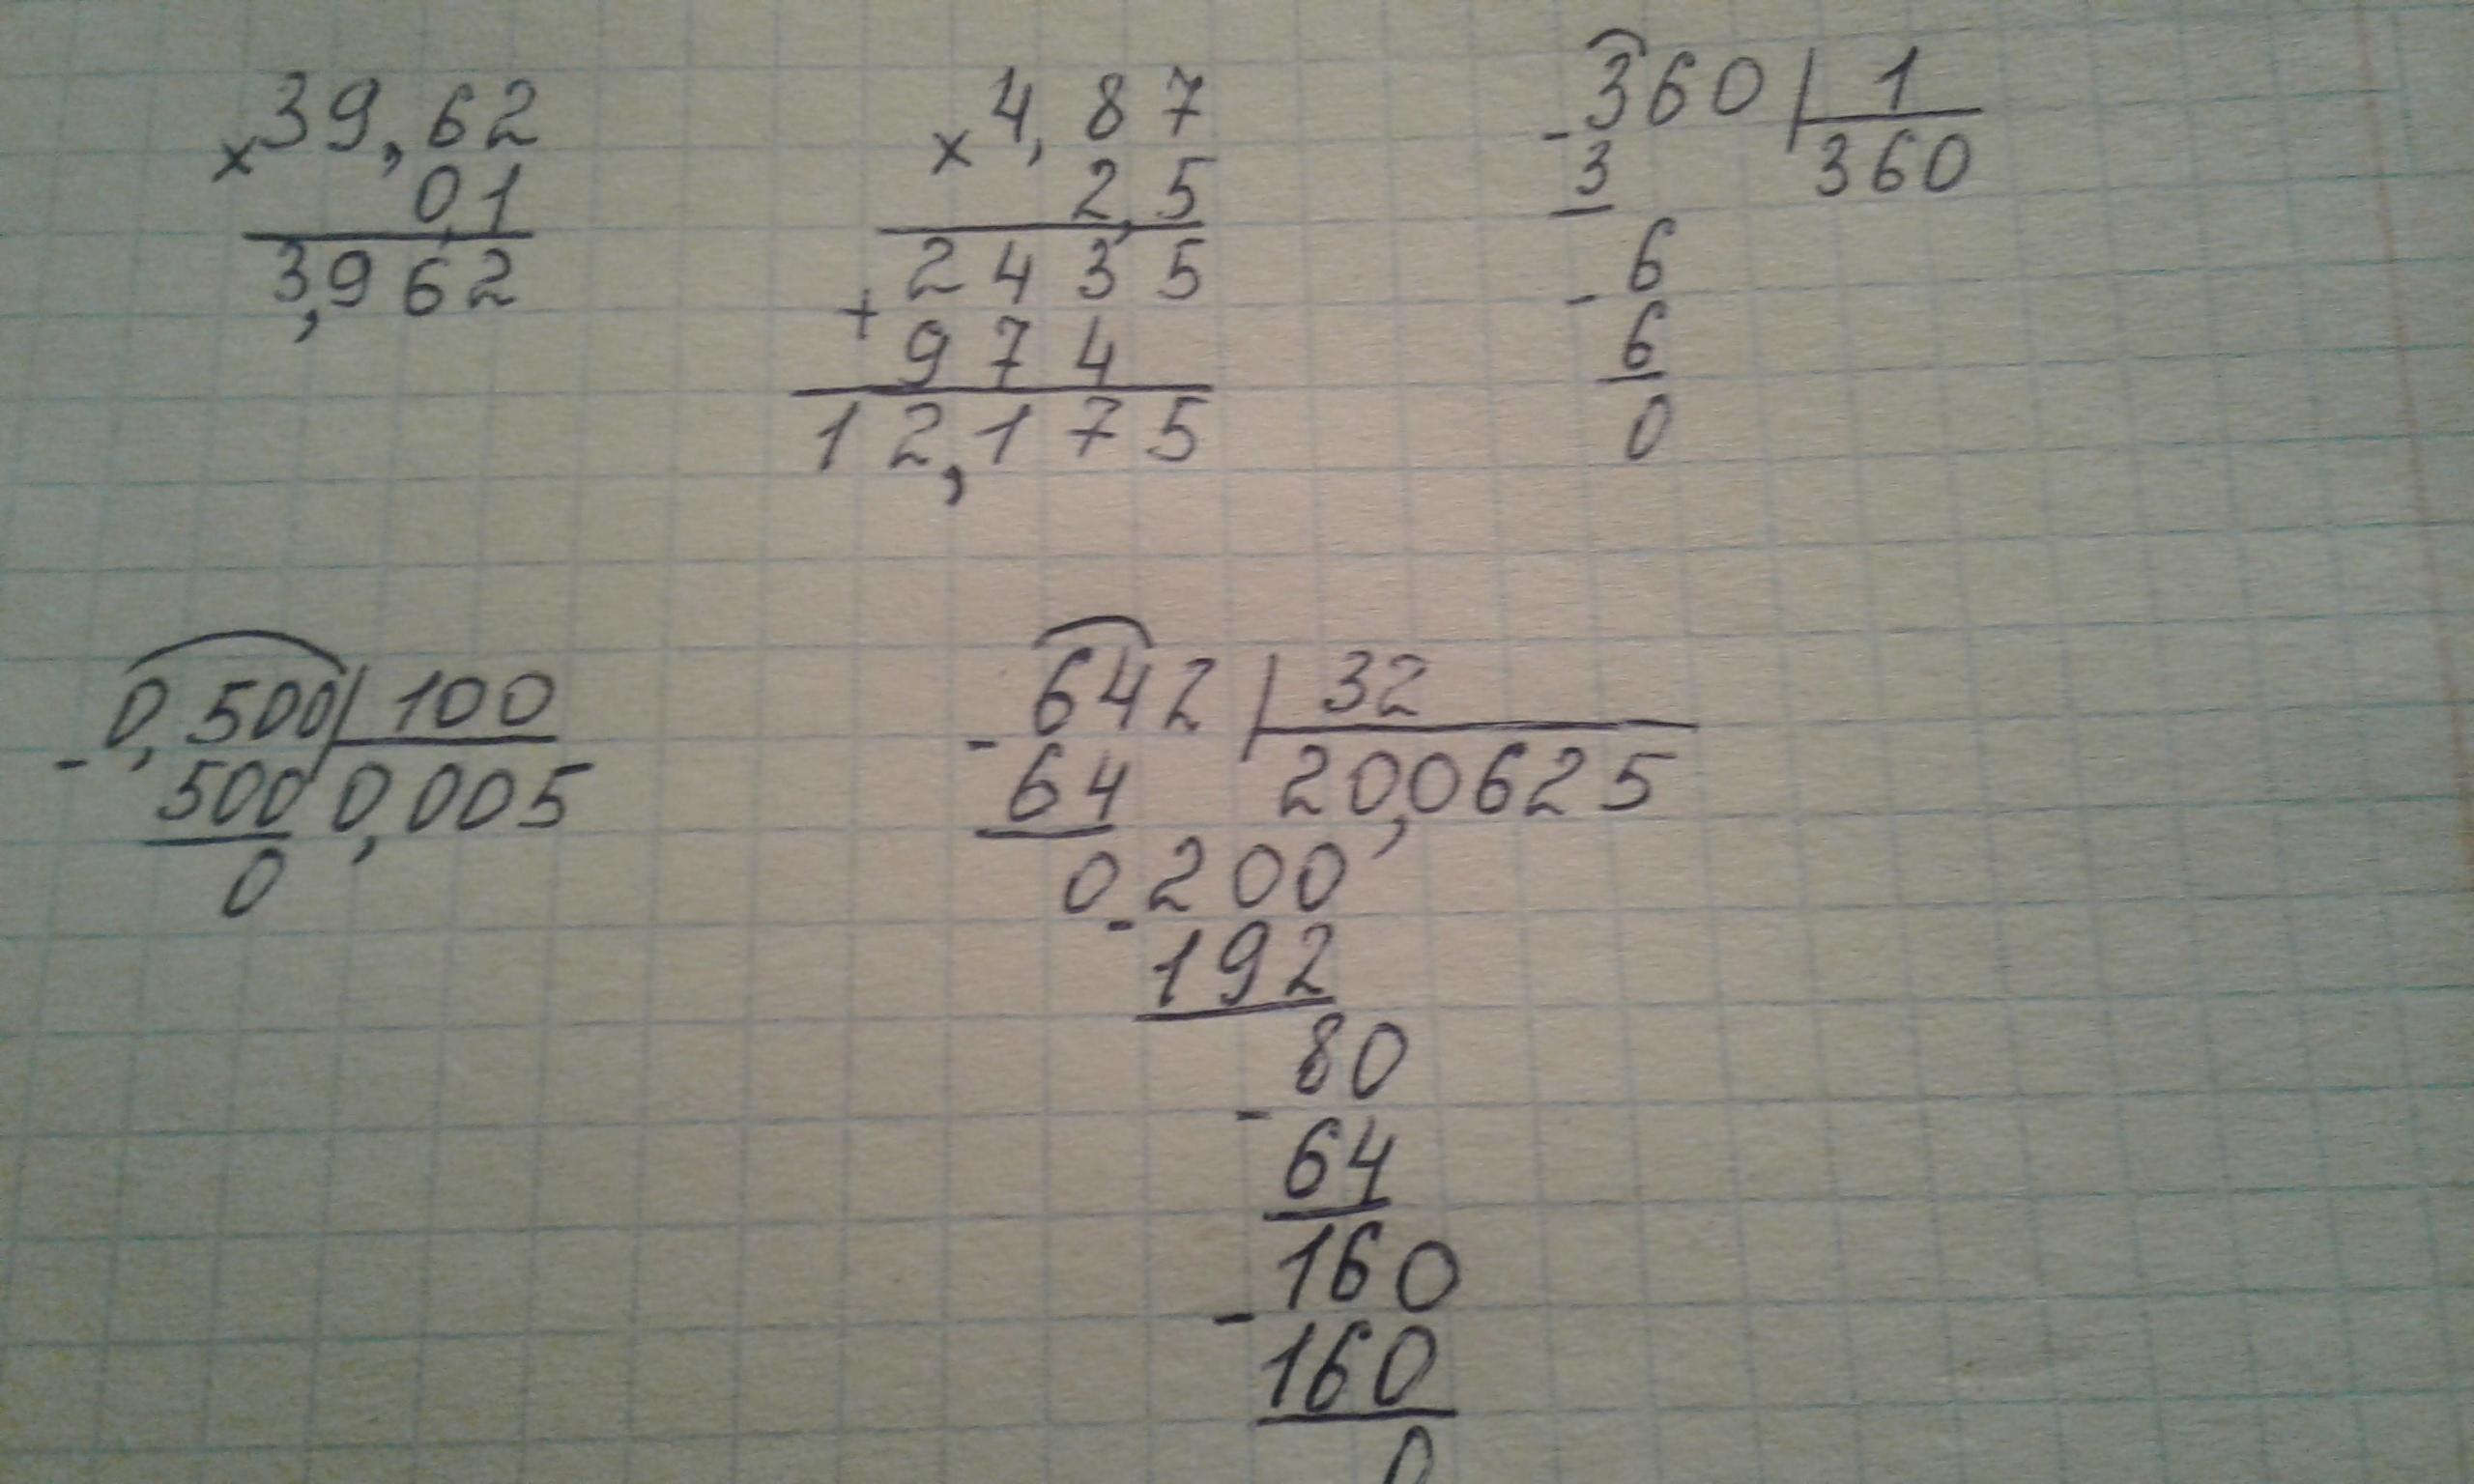 ×39,62
0,1
3,962
×4,87
2,5
2435
+974
12,175
-360 | 1
3 360
-6
6
0
-0,500 | 100
500 0,005
0
-642 | 32
64 20,0625
0-200
192
-80
64
-160
160
0